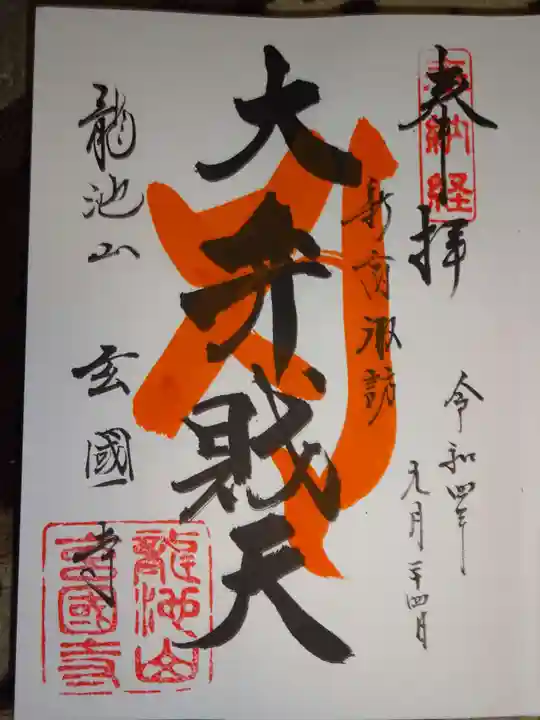 奉拝
奉納経
令和四年
九月二十四日
新宿諏訪
大弁財天
龍池山 玄國寺
龍池山
玄國寺